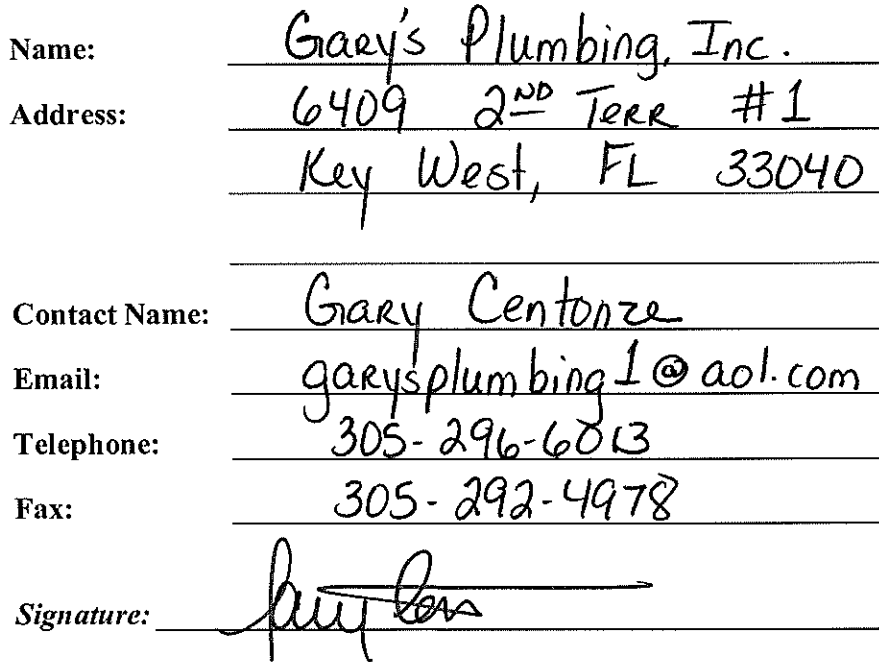 Name: Gary's Plumbing, Inc.
Address: 6409 2ND Terr #1
Key West, FL 33040
Contact Name: Gary Centonze
Email: garysplumbing1@aol.com
Telephone: 305-296-6013
Fax: 305-292-4978
Signature: